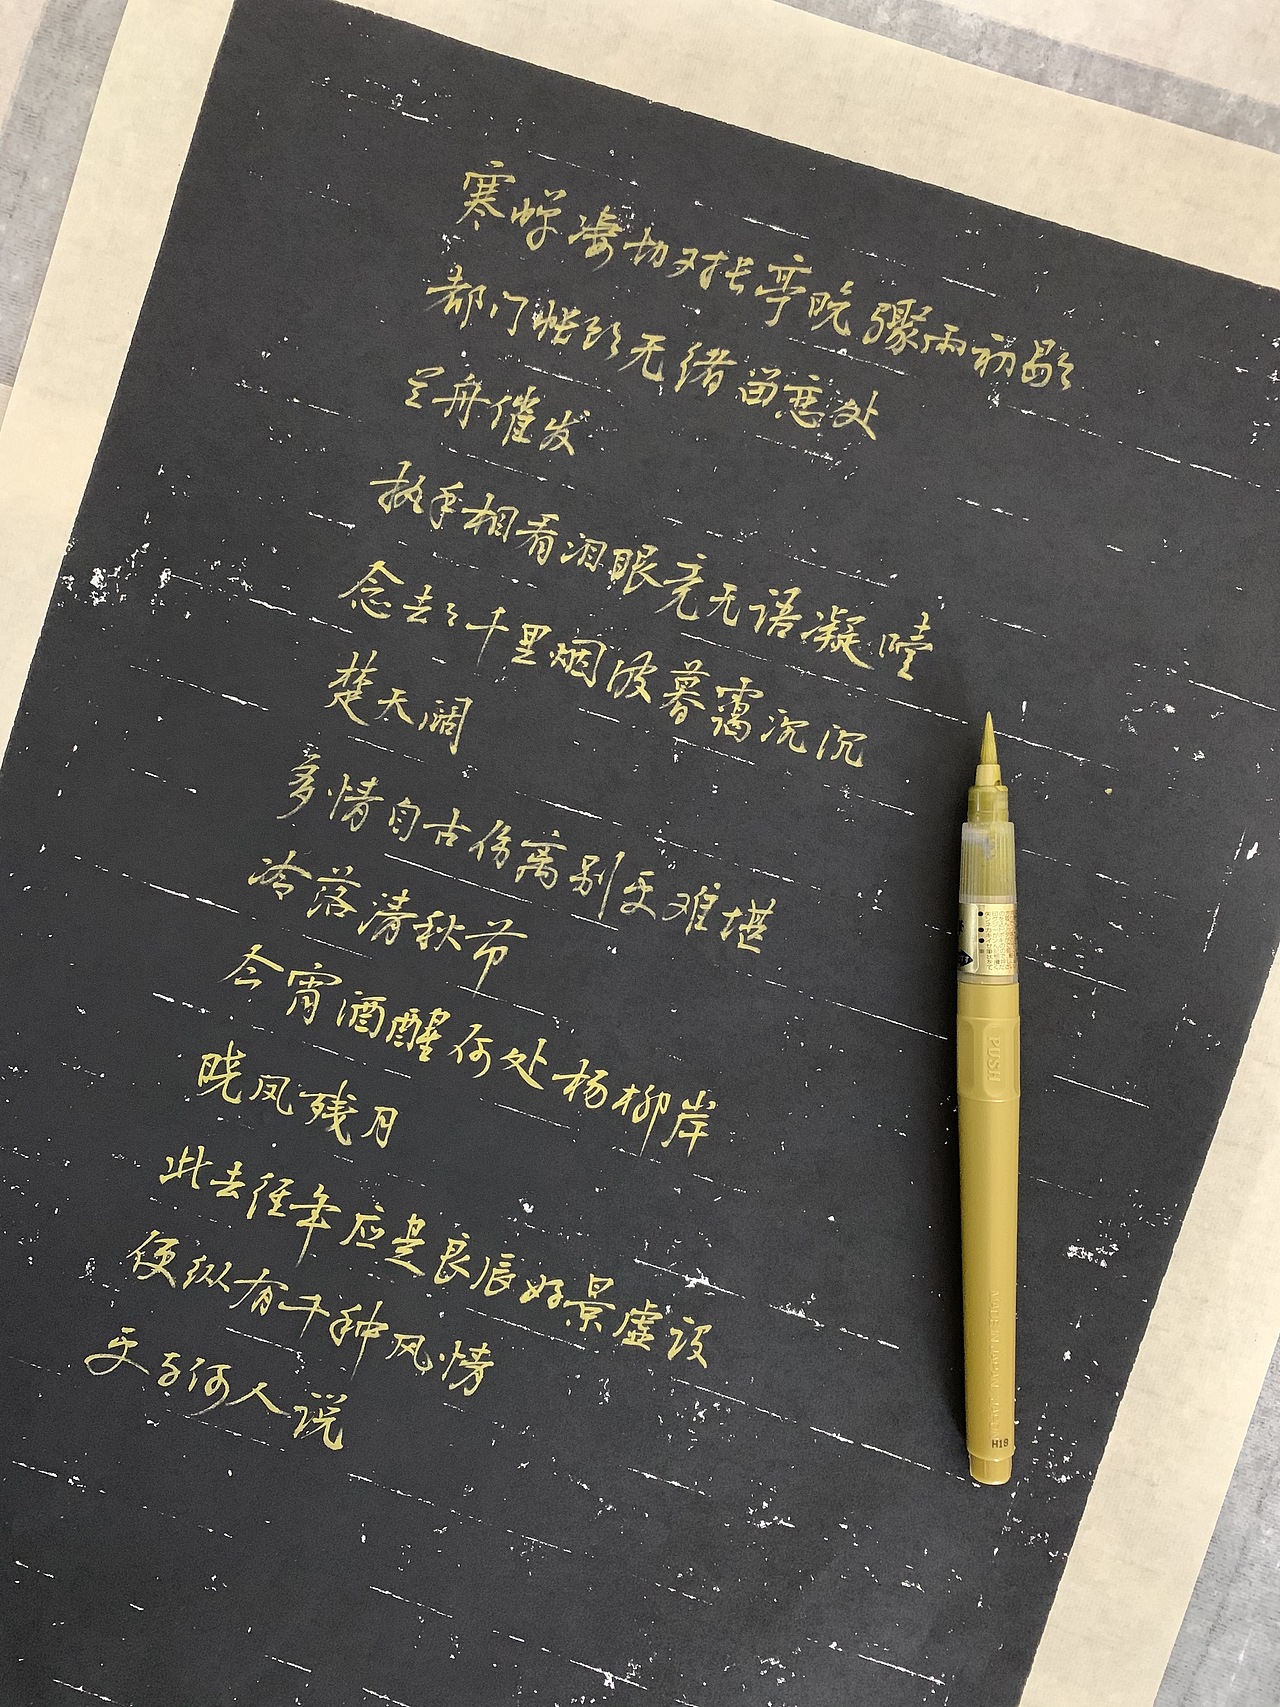 寒蝉凄切对长亭晚骤雨初歇
都门帐饮无绪留恋处
兰舟催发
执手相看泪眼竟无语凝噎
念去々千里烟波暮霭沉沉
楚天阔
多情自古伤离别更难堪
冷落清秋节
今宵酒醒何处杨柳岸
晓风残月
此去经年应是良辰好景虚设
便纵有千种风情
更与何人说
PUSH
MADE IN JAPAN
H18